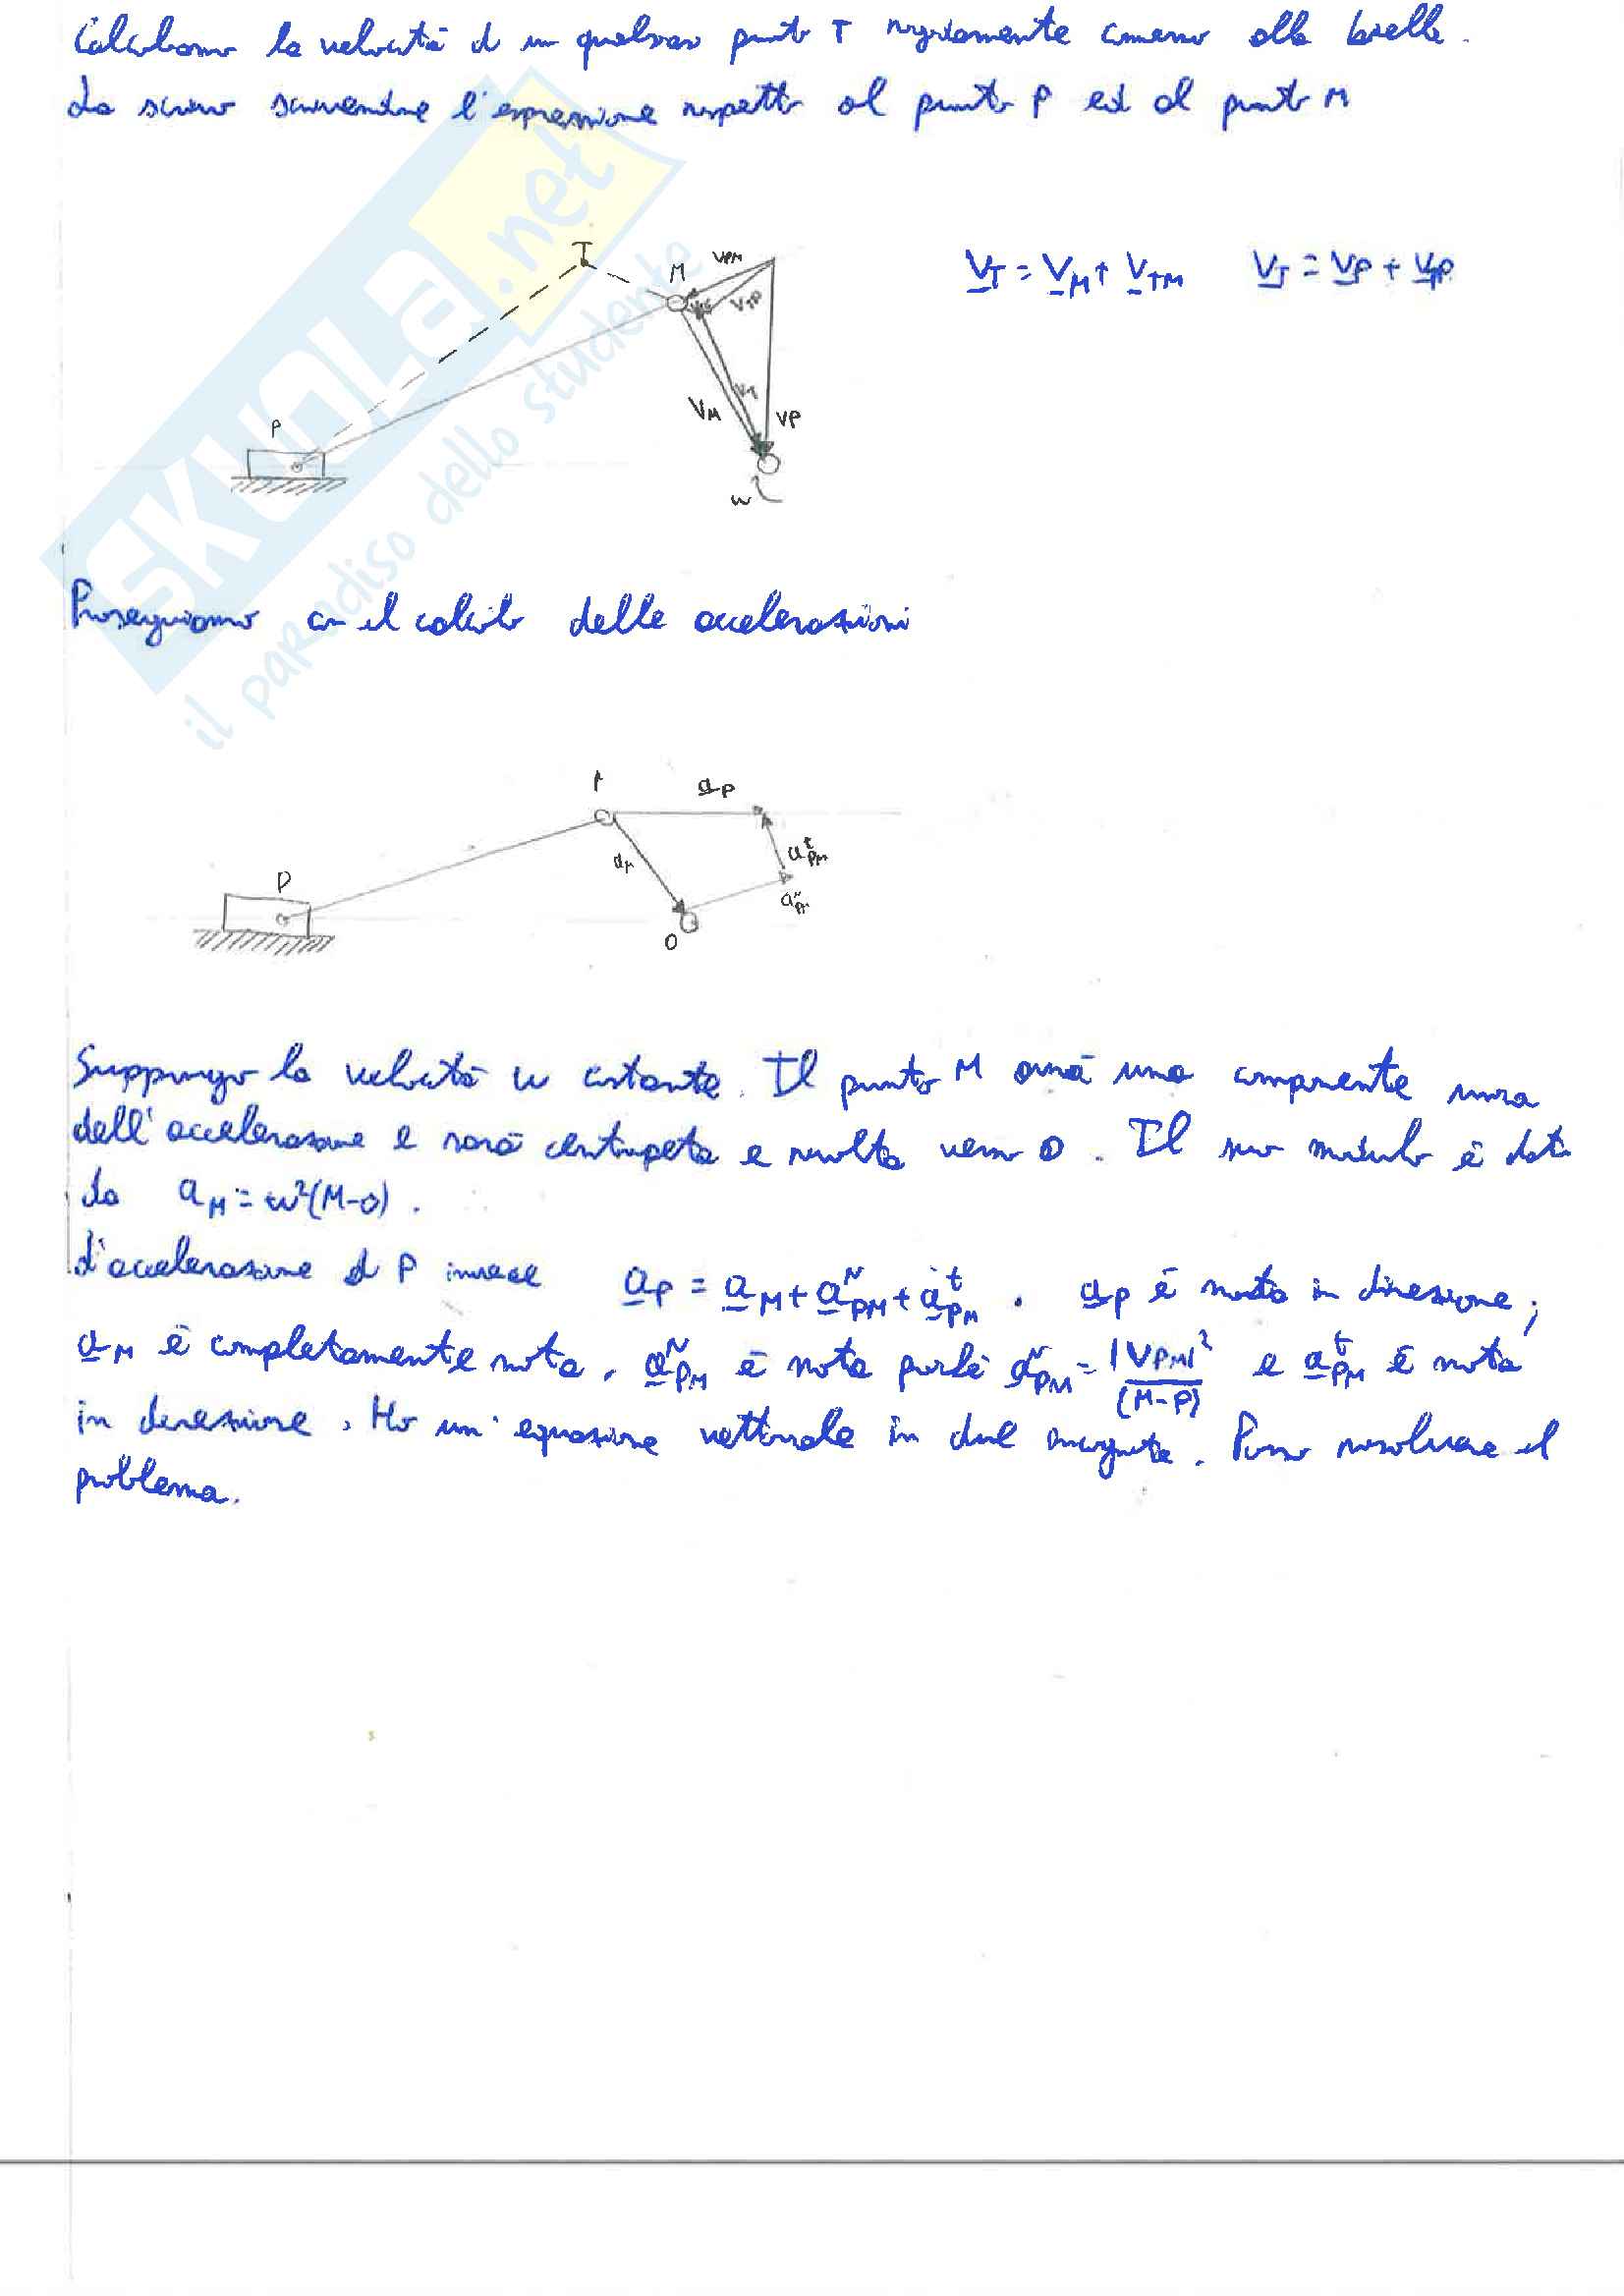 Calcoliamo la velocità di un qualsiasi punto T rigidamente connesso alla biella.
La scrivo scrivendone l'espressione rispetto al punto P ed al punto M
T
M
VPM
VTP
V_T = V_M + V_TM V_T = V_P + V_TP
VM
VT
VP
P
w
SKUOLA.net
il paradiso dello studente
Proseguiamo con il calcolo delle accelerazioni
aP
aM
a^t_PM
a^N_PM
P
O
Suppongo la velocità w costante. Il punto M avrà una componente unica
dell'accelerazione e sarà centripeta e rivolta verso O. Il suo modulo è dato
da a_M = w²(M-O).
L'accelerazione di P invece a_P = a_M + a^N_PM + a^t_PM. a_P è nota in direzione;
a_M è completamente nota, a^N_PM è nota perché a^N_PM = |VPM|²/(M-P) e a^t_PM è nota
in direzione. Ho un'equazione vettoriale in due incognite. Posso risolvere il
problema.